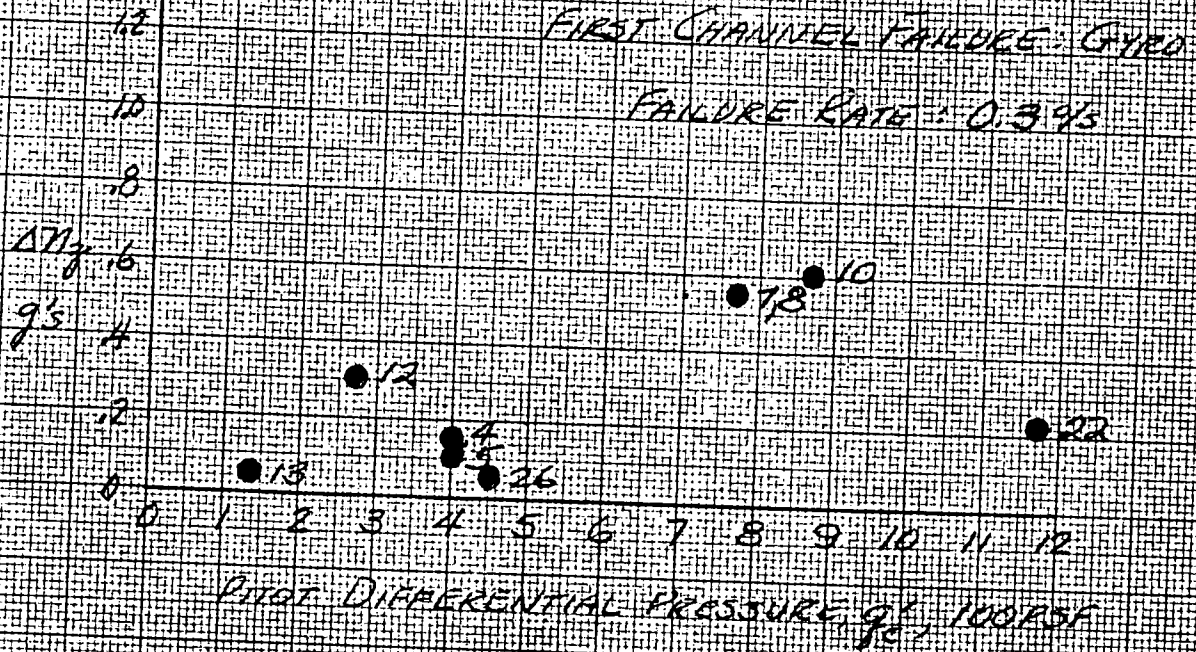 FIRST CHANNEL FAILURE: GYRO
FAILURE RATE: 0.3°/s
1.2
1.0
.8
.6
.4
.2
0
Δnz
g's
10
7,8
12
4
5
22
13
26
0 1 2 3 4 5 6 7 8 9 10 11 12
PITOT DIFFERENTIAL PRESSURE, q'c, 100 PSF